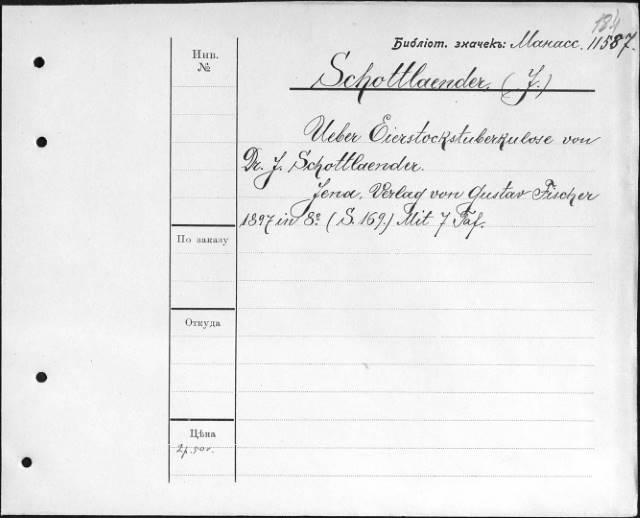 Библіот. значекъ: Манасс. 11587.
Инв.
№
Schottlaender. (J.)
Ueber Eierstockstuberkulose von
Dr. J. Schottlaender.
Jena. Verlag von Gustav Fischer
1897 in 8º (S. 169.) Mit 7 Taf.
По заказу
Откуда
Цѣна
2 р. 50 к.